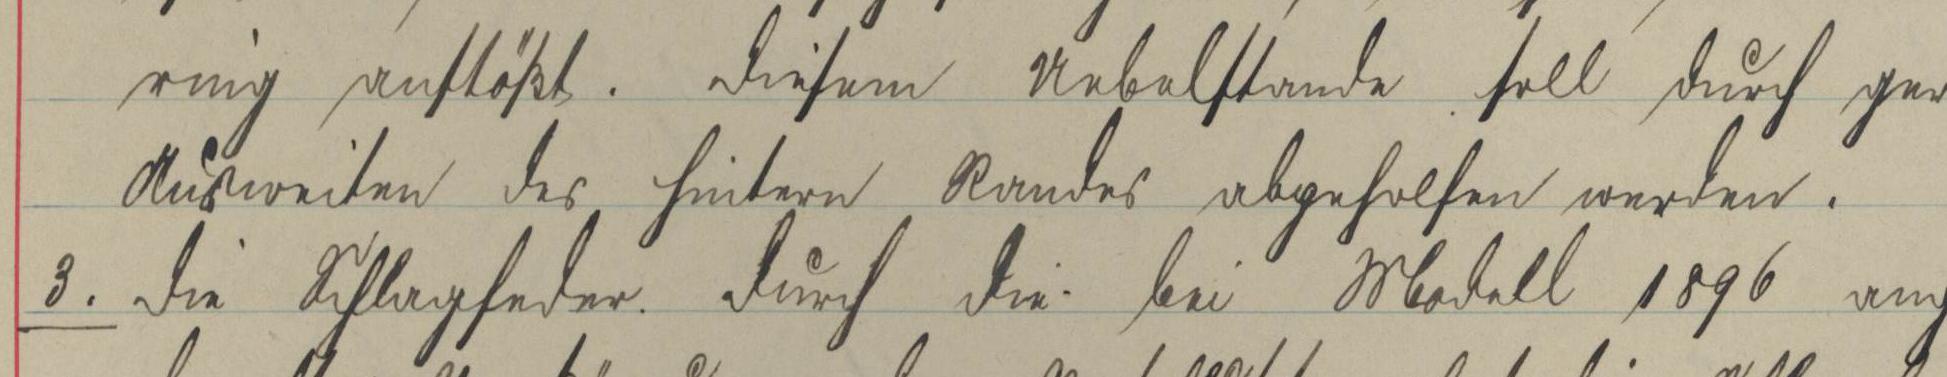 ring anstößt. Diesem Uebelstande soll durch ger
Ausweiten des hintern Randes abgeholfen werden.
3. Die Schlagfeder. Durch die bei Modell 1896 ang